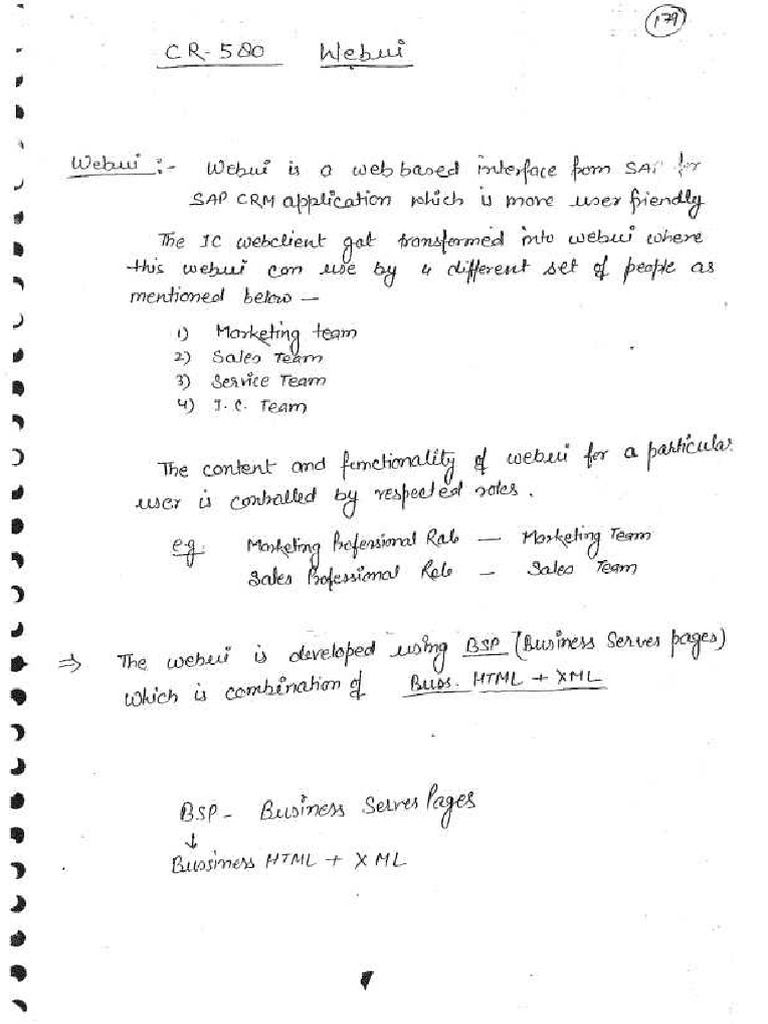 179
CR-580 Webui
Webui :- Webui is a web based interface from SAP for
SAP CRM application which is more user friendly
The IC webclient got transformed into webui where
this webui can use by 4 different set of people as
mentioned below -
1) Marketing team
2) Sales Team
3) Service Team
4) I.C. Team
The content and functionality of webui for a particular
user is controlled by respected roles.
e.g. Marketing Professional Role - Marketing Team
Sales Professional Role - Sales Team
⇒ The webui is developed using BSP (Business Server pages)
which is combination of Buss. HTML + XML
BSP - Business Server Pages
↓
Bussiness HTML + XML